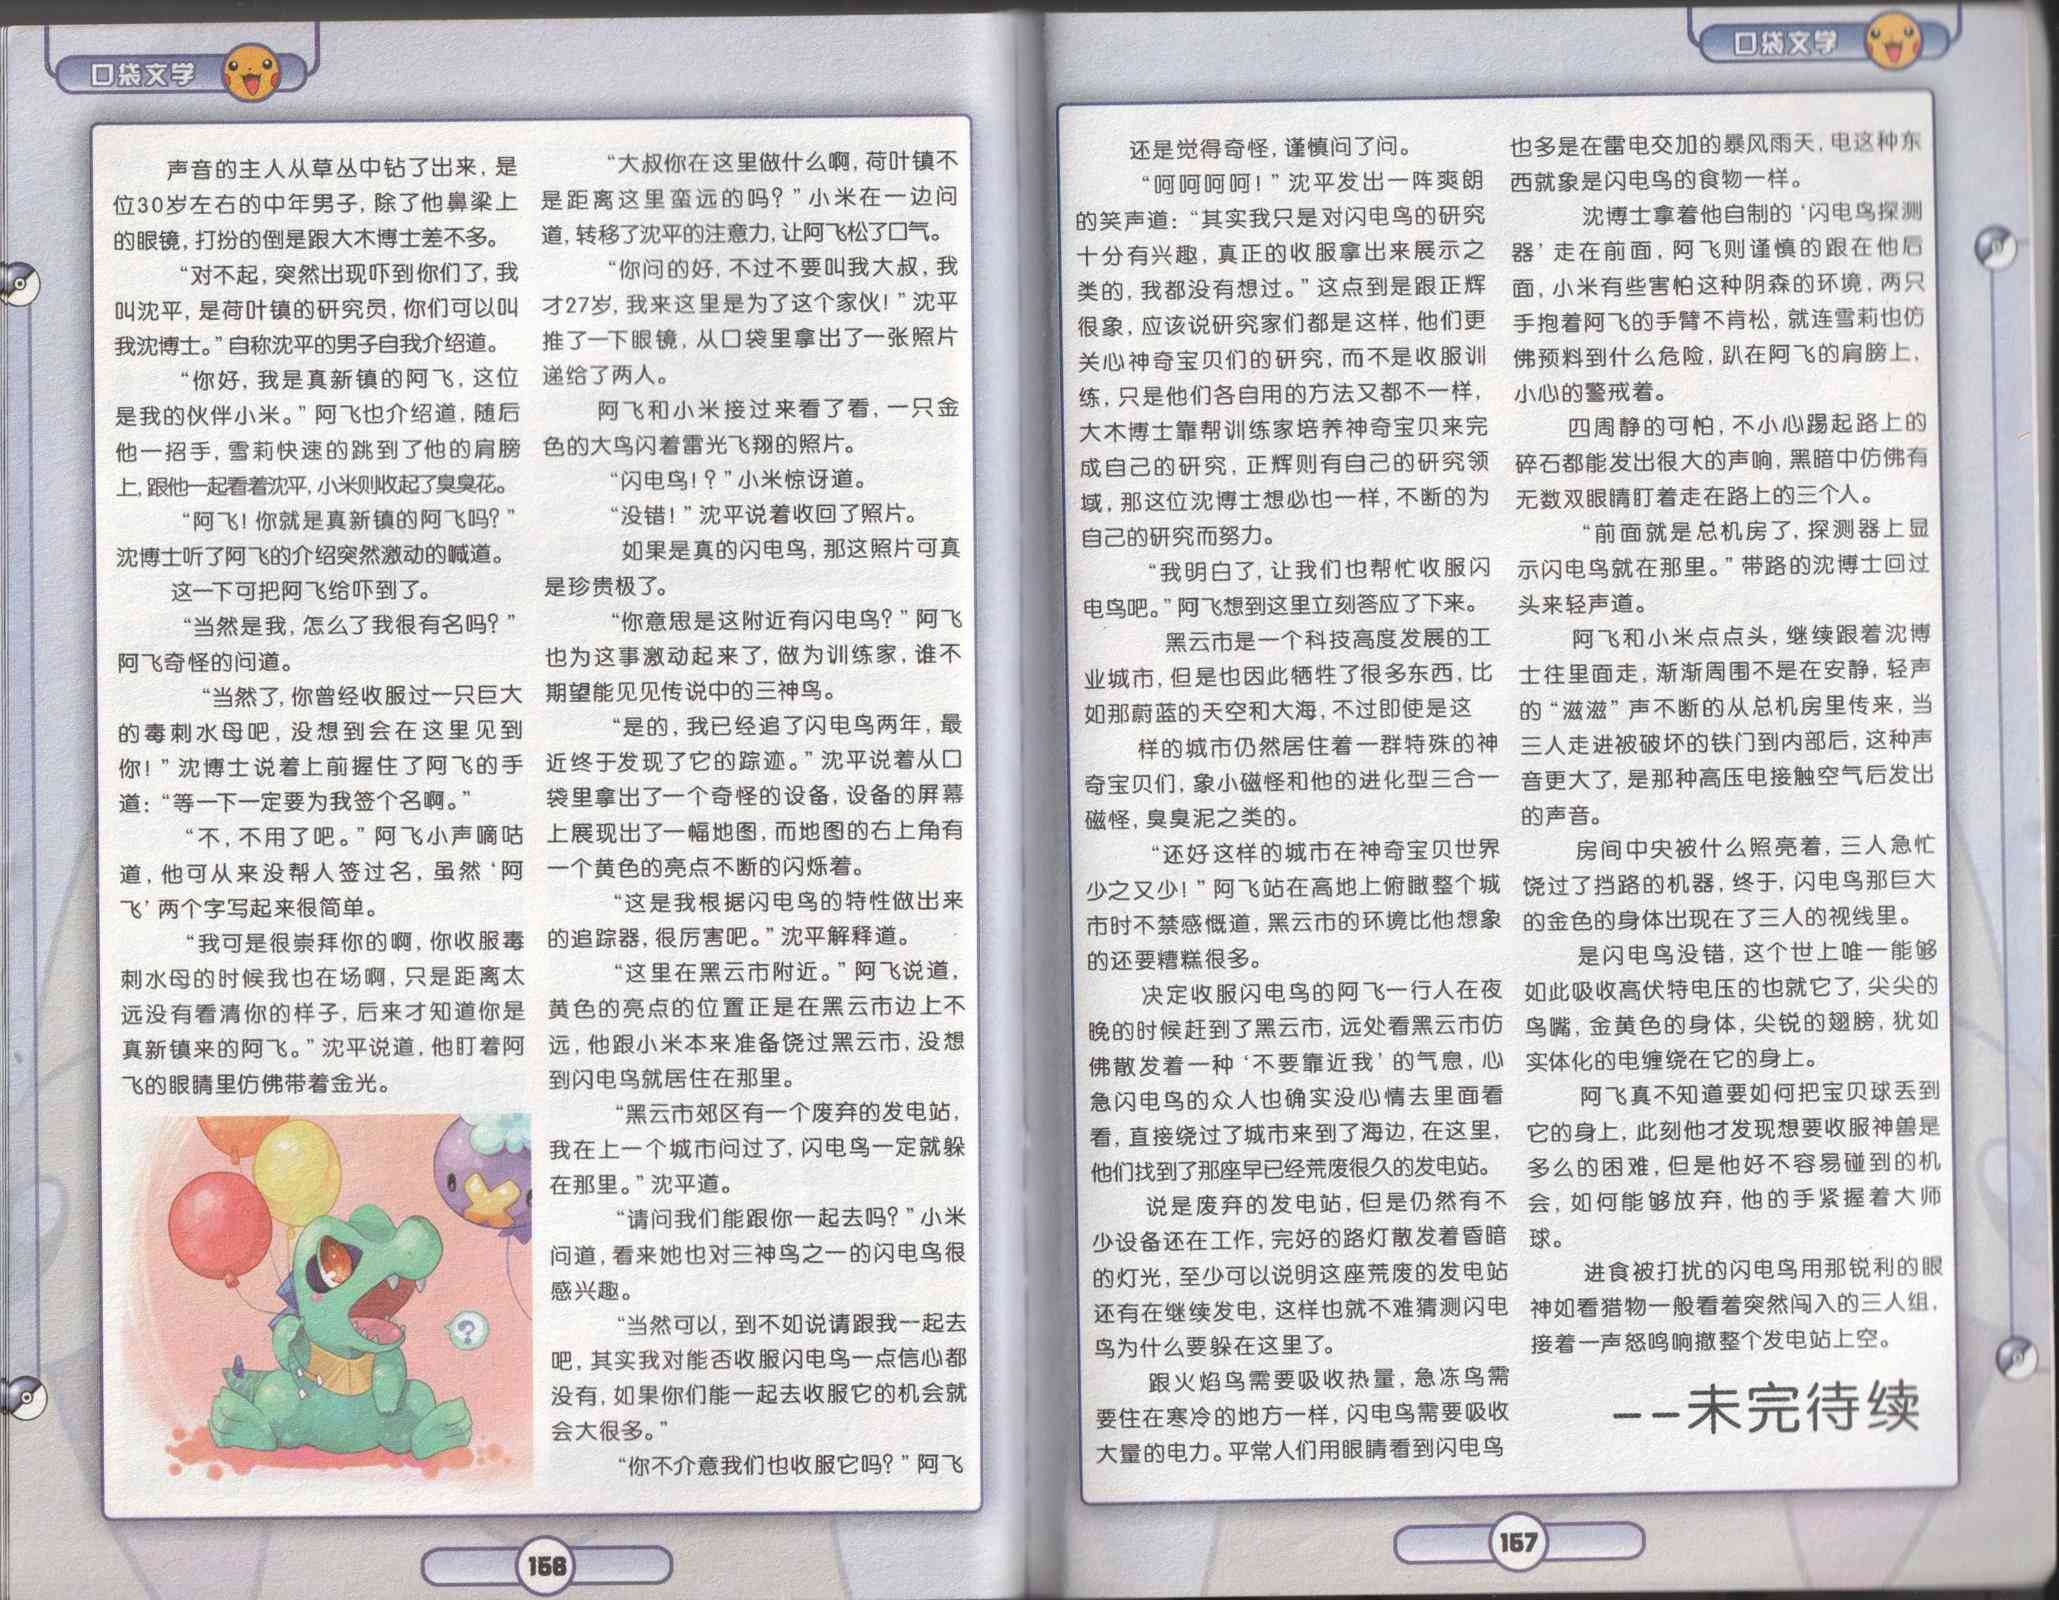 口袋文学
声音的主人从草丛中钻了出来，是
位30岁左右的中年男子，除了他鼻梁上
的眼镜，打扮的倒是跟大木博士差不多。
“对不起，突然出现吓到你们了，我
叫沈平，是荷叶镇的研究员，你们可以叫
我沈博士。”自称沈平的男子自我介绍道。
“你好，我是真新镇的阿飞，这位
是我的伙伴小米。”阿飞也介绍道，随后
他一招手，雪莉快速的跳到了他的肩膀
上，跟他一起看着沈平，小米则收起了臭臭花。
“阿飞！你就是真新镇的阿飞吗？”
沈博士听了阿飞的介绍突然激动的喊道。
这一下可把阿飞给吓到了。
“当然是我，怎么了我很有名吗？”
阿飞奇怪的问道。
“当然了，你曾经收服过一只巨大
的毒刺水母吧，没想到会在这里见到
你！”沈博士说着上前握住了阿飞的手
道：“等一下一定要为我签个名啊。”
“不，不用了吧。”阿飞小声嘀咕
道，他可从来没帮人签过名，虽然‘阿
飞’两个字写起来很简单。
“我可是很崇拜你的啊，你收服毒
刺水母的时候我也在场啊，只是距离太
远没有看清你的样子，后来才知道你是
真新镇来的阿飞。”沈平说道，他盯着阿
飞的眼睛里仿佛带着金光。
?
“大叔你在这里做什么啊，荷叶镇不
是距离这里蛮远的吗？”小米在一边问
道，转移了沈平的注意力，让阿飞松了口气。
“你问的好，不过不要叫我大叔，我
才27岁，我来这里是为了这个家伙！”沈平
推了一下眼镜，从口袋里拿出了一张照片
递给了两人。
阿飞和小米接过来看了看，一只金
色的大鸟闪着雷光飞翔的照片。
“闪电鸟！？”小米惊讶道。
“没错！”沈平说着收回了照片。
如果是真的闪电鸟，那这照片可真
是珍贵极了。
“你意思是这附近有闪电鸟？”阿飞
也为这事激动起来了，做为训练家，谁不
期望能见见传说中的三神鸟。
“是的，我已经追了闪电鸟两年，最
近终于发现了它的踪迹。”沈平说着从口
袋里拿出了一个奇怪的设备，设备的屏幕
上展现出了一幅地图，而地图的右上角有
一个黄色的亮点不断的闪烁着。
“这是我根据闪电鸟的特性做出来
的追踪器，很厉害吧。”沈平解释道。
“这里在黑云市附近。”阿飞说道，
黄色的亮点的位置正是在黑云市边上不
远，他跟小米本来准备饶过黑云市，没想
到闪电鸟就居住在那里。
“黑云市郊区有一个废弃的发电站，
我在上一个城市问过了，闪电鸟一定就躲
在那里。”沈平道。
“请问我们能跟你一起去吗？”小米
问道，看来她也对三神鸟之一的闪电鸟很
感兴趣。
“当然可以，到不如说请跟我一起去
吧，其实我对能否收服闪电鸟一点信心都
没有，如果你们能一起去收服它的机会就
会大很多。”
“你不介意我们也收服它吗？”阿飞
156
口袋文学
还是觉得奇怪，谨慎问了问。
“呵呵呵呵！”沈平发出一阵爽朗
的笑声道：“其实我只是对闪电鸟的研究
十分有兴趣，真正的收服拿出来展示之
类的，我都没有想过。”这点到是跟正辉
很象，应该说研究家们都是这样，他们更
关心神奇宝贝们的研究，而不是收服训
练，只是他们各自用的方法又都不一样，
大木博士靠帮训练家培养神奇宝贝来完
成自己的研究，正辉则有自己的研究领
域，那这位沈博士想必也一样，不断的为
自己的研究而努力。
“我明白了，让我们也帮忙收服闪
电鸟吧。”阿飞想到这里立刻答应了下来。
黑云市是一个科技高度发展的工
业城市，但是也因此牺牲了很多东西，比
如那蔚蓝的天空和大海，不过即使是这
样的城市仍然居住着一群特殊的神
奇宝贝们，象小磁怪和他的进化型三合一
磁怪，臭臭泥之类的。
“还好这样的城市在神奇宝贝世界
少之又少！”阿飞站在高地上俯瞰整个城
市时不禁感慨道，黑云市的环境比他想象
的还要糟糕很多。
决定收服闪电鸟的阿飞一行人在夜
晚的时候赶到了黑云市，远处看黑云市仿
佛散发着一种‘不要靠近我’的气息，心
急闪电鸟的众人也确实没心情去里面看
看，直接绕过了城市来到了海边，在这里，
他们找到了那座早已经荒废很久的发电站。
说是废弃的发电站，但是仍然有不
少设备还在工作，完好的路灯散发着昏暗
的灯光，至少可以说明这座荒废的发电站
还有在继续发电，这样也就不难猜测闪电
鸟为什么要躲在这里了。
跟火焰鸟需要吸收热量，急冻鸟需
要住在寒冷的地方一样，闪电鸟需要吸收
大量的电力。平常人们用眼睛看到闪电鸟
也多是在雷电交加的暴风雨天，电这种东
西就象是闪电鸟的食物一样。
沈博士拿着他自制的‘闪电鸟探测
器’走在前面，阿飞则谨慎的跟在他后
面，小米有些害怕这种阴森的环境，两只
手抱着阿飞的手臂不肯松，就连雪莉也仿
佛预料到什么危险，趴在阿飞的肩膀上，
小心的警戒着。
四周静的可怕，不小心踢起路上的
碎石都能发出很大的声响，黑暗中仿佛有
无数双眼睛盯着走在路上的三个人。
“前面就是总机房了，探测器上显
示闪电鸟就在那里。”带路的沈博士回过
头来轻声道。
阿飞和小米点点头，继续跟着沈博
士往里面走，渐渐周围不是在安静，轻声
的“滋滋”声不断的从总机房里传来，当
三人走进被破坏的铁门到内部后，这种声
音更大了，是那种高压电接触空气后发出
的声音。
房间中央被什么照亮着，三人急忙
饶过了挡路的机器，终于，闪电鸟那巨大
的金色的身体出现在了三人的视线里。
是闪电鸟没错，这个世上唯一能够
如此吸收高伏特电压的也就它了，尖尖的
鸟嘴，金黄色的身体，尖锐的翅膀，犹如
实体化的电缠绕在它的身上。
阿飞真不知道要如何把宝贝球丢到
它的身上，此刻他才发现想要收服神兽是
多么的困难，但是他好不容易碰到的机
会，如何能够放弃，他的手紧握着大师
球。
进食被打扰的闪电鸟用那锐利的眼
神如看猎物一般看着突然闯入的三人组，
接着一声怒鸣响撤整个发电站上空。
--未完待续
157